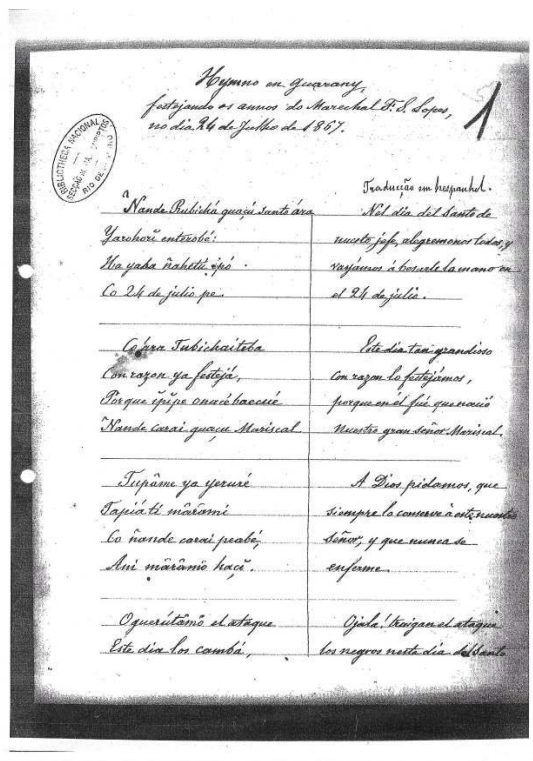 Hymno en guarany,
festejando os annos do Marechal F. S. Lopes,
no dia 24 de Julho de 1867.
1
BIBLIOTHECA NACIONAL
RIO DE
Traducção em hespanhol.
Ñande Rubichá guaçú santo ára
Yarohorĩ enterobé:
Ha yaha ñahetũ ipó
Co 24 de julio pe.
Co ára Tubichaiteba
Con razon ya festejá,
Porque ipĩpe onacé baecué
Ñande carai guaçu Mariscal
Tupãme ya yeruré
Tapiáti mãrãmi
Co ñande carai peabé,
Ani mãrãmo haçĩ.
Oguerútãmõ el ataque
Este dia los cambá,
Nel día del Santo de
nuesto jefe, alegremonos todos, y
vayámos á besarle la mano en
el 24 de julio.
Este dia tan grandisso
con razon lo festejámos,
porque en él fué que nació
nuestro gran señor Mariscal.
A Dios pidamos, que
siempre lo conserve á este nuestro
señor, y que nunca se
enferme.
Ojala! traigan el ataque
los negros neste dia del Santo